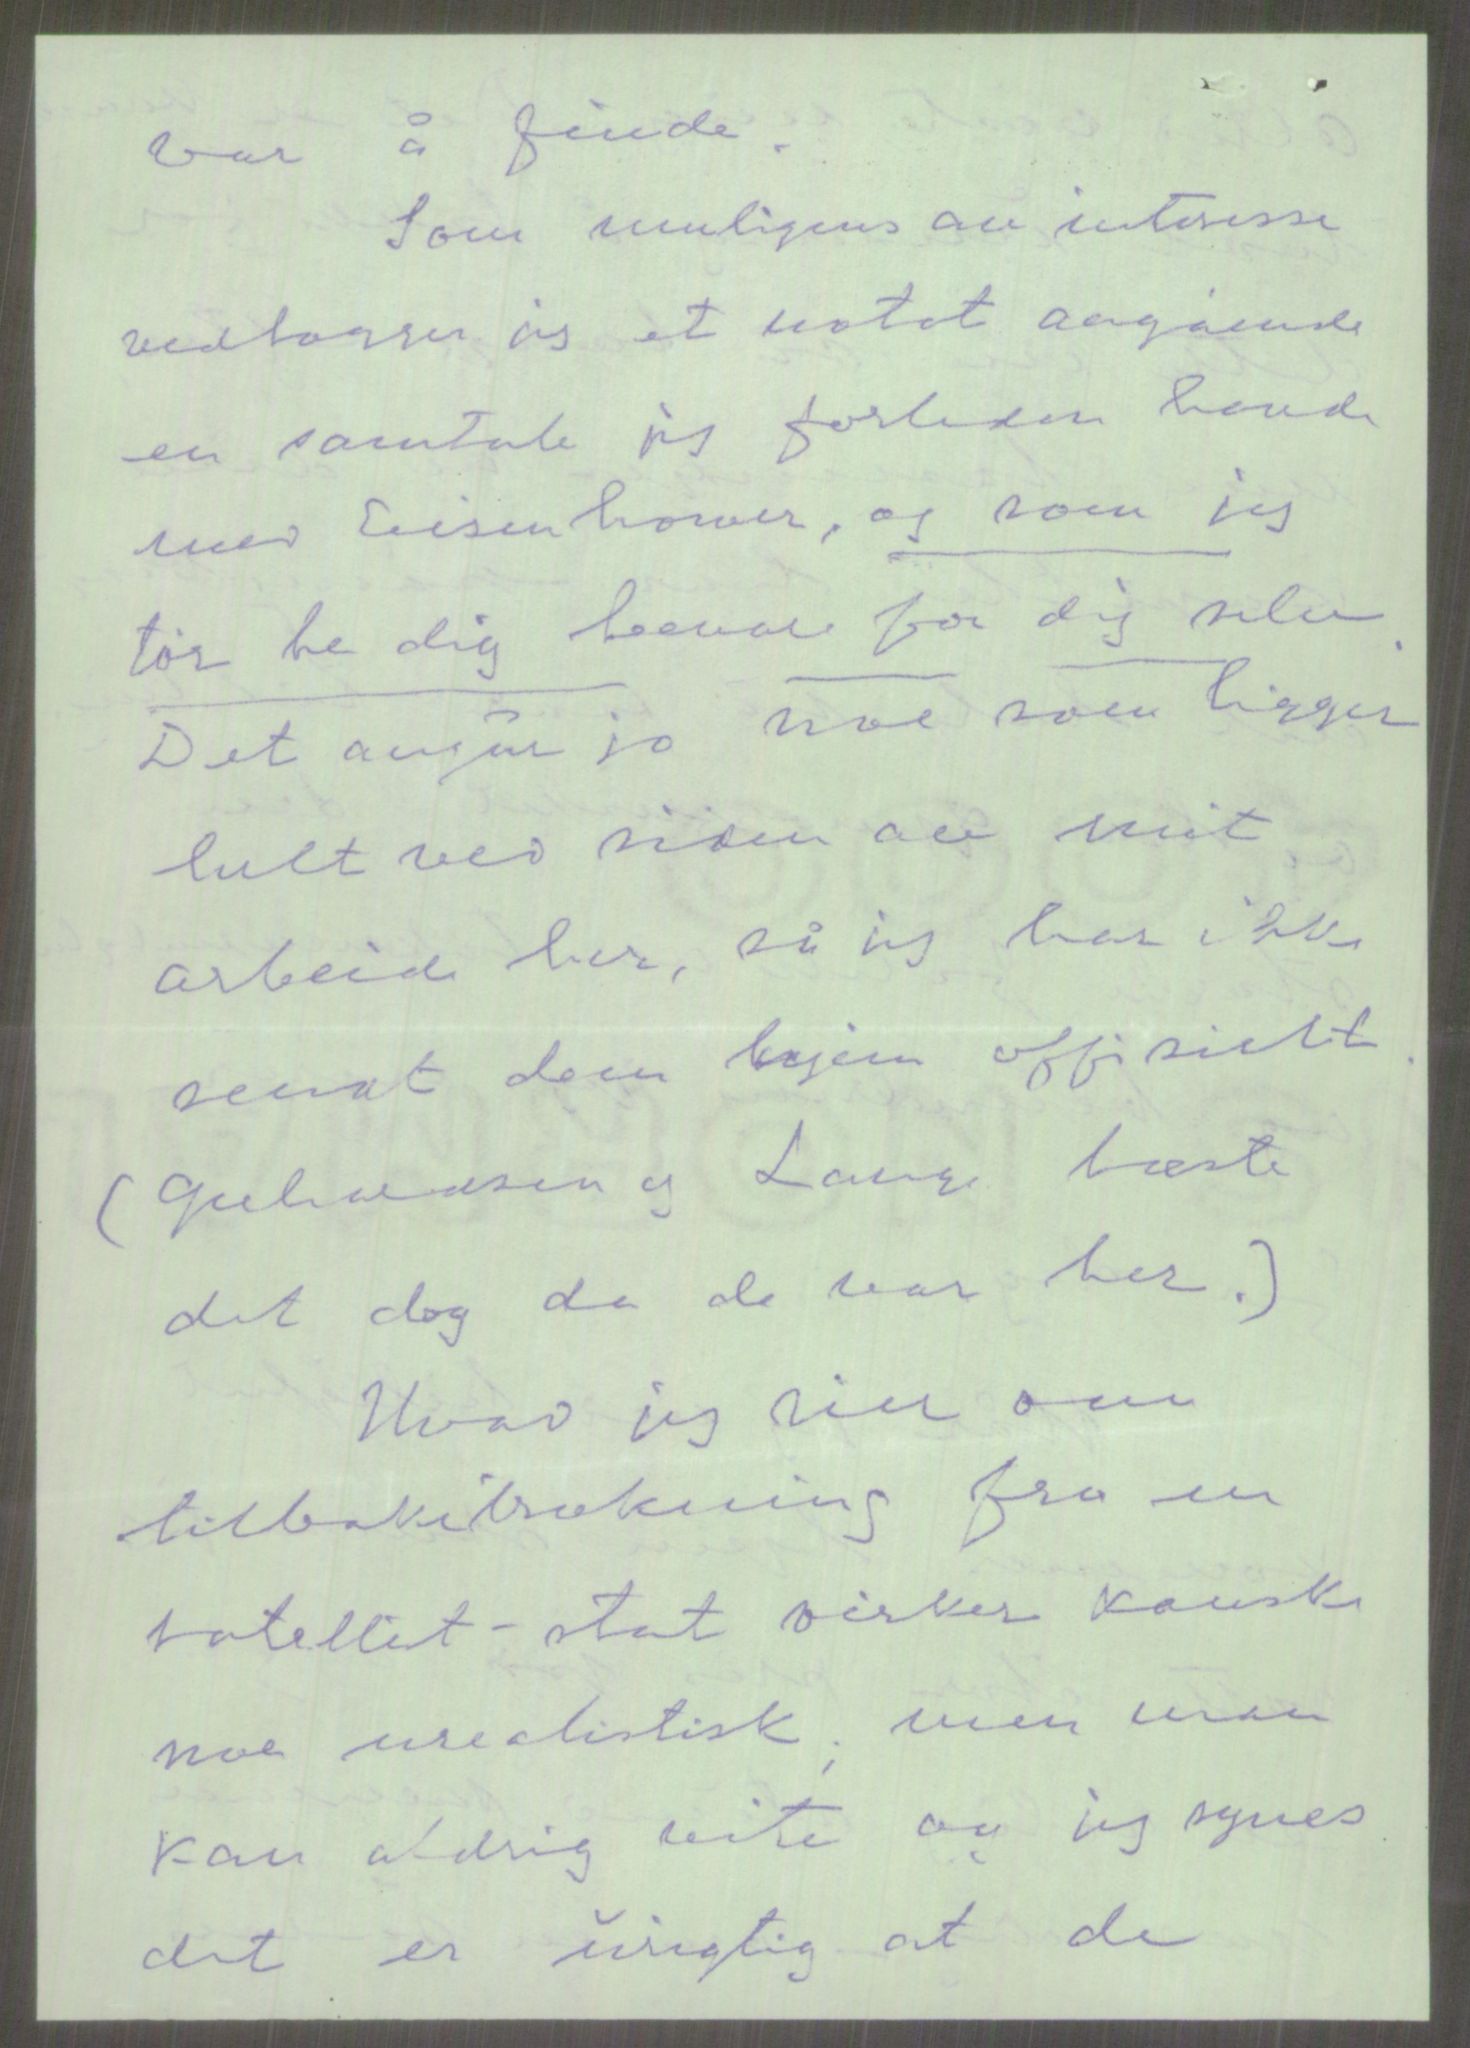 var å finde.
Som muligens av interesse
vedlægger jeg et notat angående
en samtale jeg forleden havde
med Eisenhower, og som jeg
tør be dig bevare for dig selv.
Det angår jo noe som ligger
helt ved siden av mit
arbeide her, så jeg har ikke
sendt dem hjem offisielt.
(Gerhardsen og Lange læste
det dog da de var her.)
Hvad jeg sier om
tilbaketrækning fra en
satellit-stat virker kanske
noe urealistisk; men man
kan aldrig vite og jeg synes
det er urigtig at de